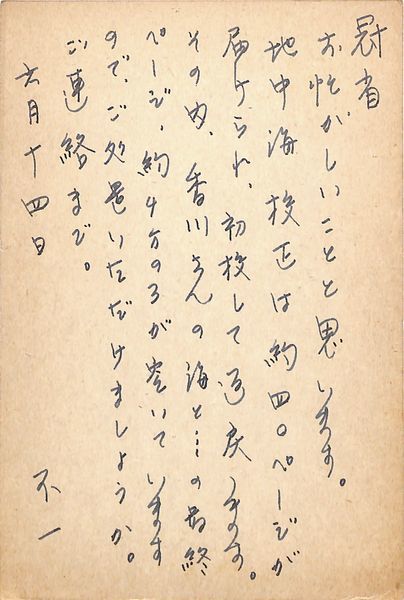 冠省
お忙がしいことと思います。
地中海校正は約四〇ページが
届けられ、初校して返戻します。
その内、香川さんの海と…の最終
ページ、約4分の3が空いています
ので、ご処置いただけましょうか。
ご連絡まで。
六月十四日
不一